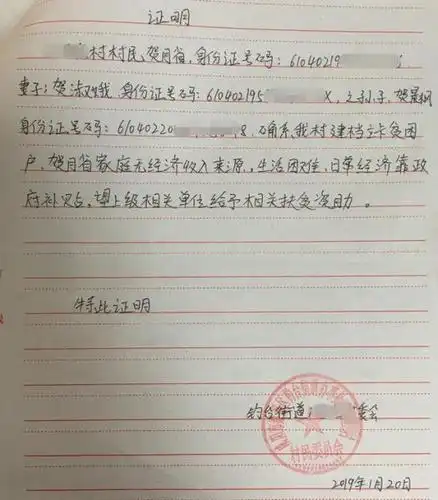 证明
村村民贺月省,身份证号码:61040219
妻子:贺淑娥 身份证号码:610402195 X,之孙子,贺晨
身份证号码:61040220 8,确系我村建档立卡贫困
户,贺月省家庭无经济收入来源,生活困难,日常经济靠政
府补贴,望上级相关单位给予相关扶贫资助。
特此证明
钓台街道 委会
村民委员会
2019年1月20日